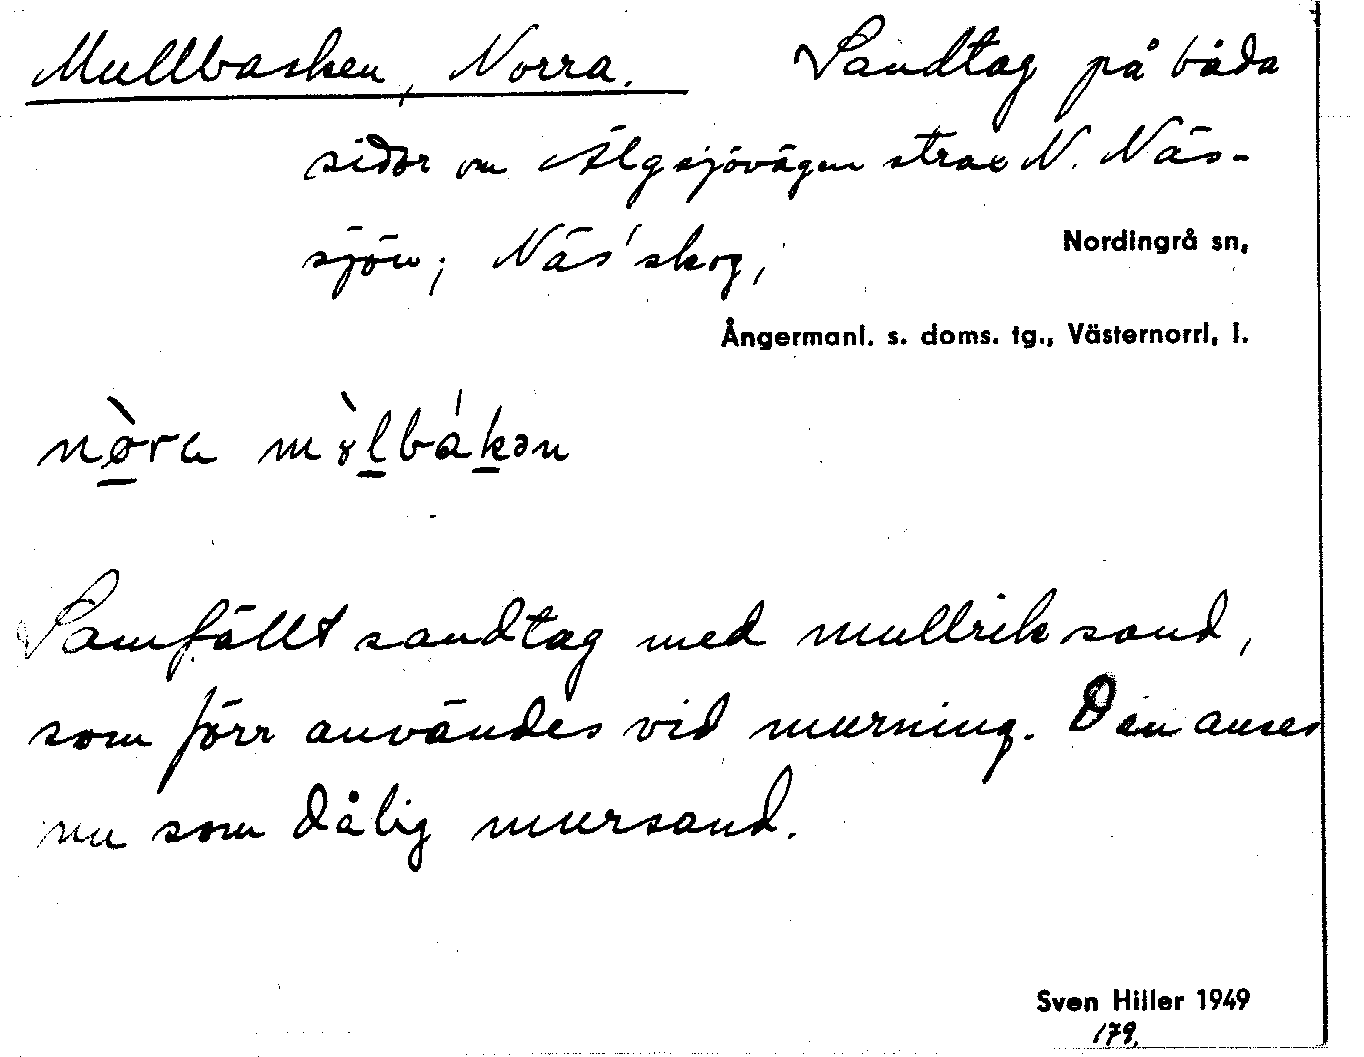 Mullbacken, Norra. Sandtag på båda
sidor om Älgsjövägen strax N. Näs-
sjön; Näs' skog,
Nordingrå sn,
Ångermanl. s. doms. tg., Västernorrl. l.
nòra mòlbákən
Samfällt sandtag med mullrik sand,
som förr användes vid murning. Den anses
nu som dålig mursand.
Sven Hiller 1949
179.